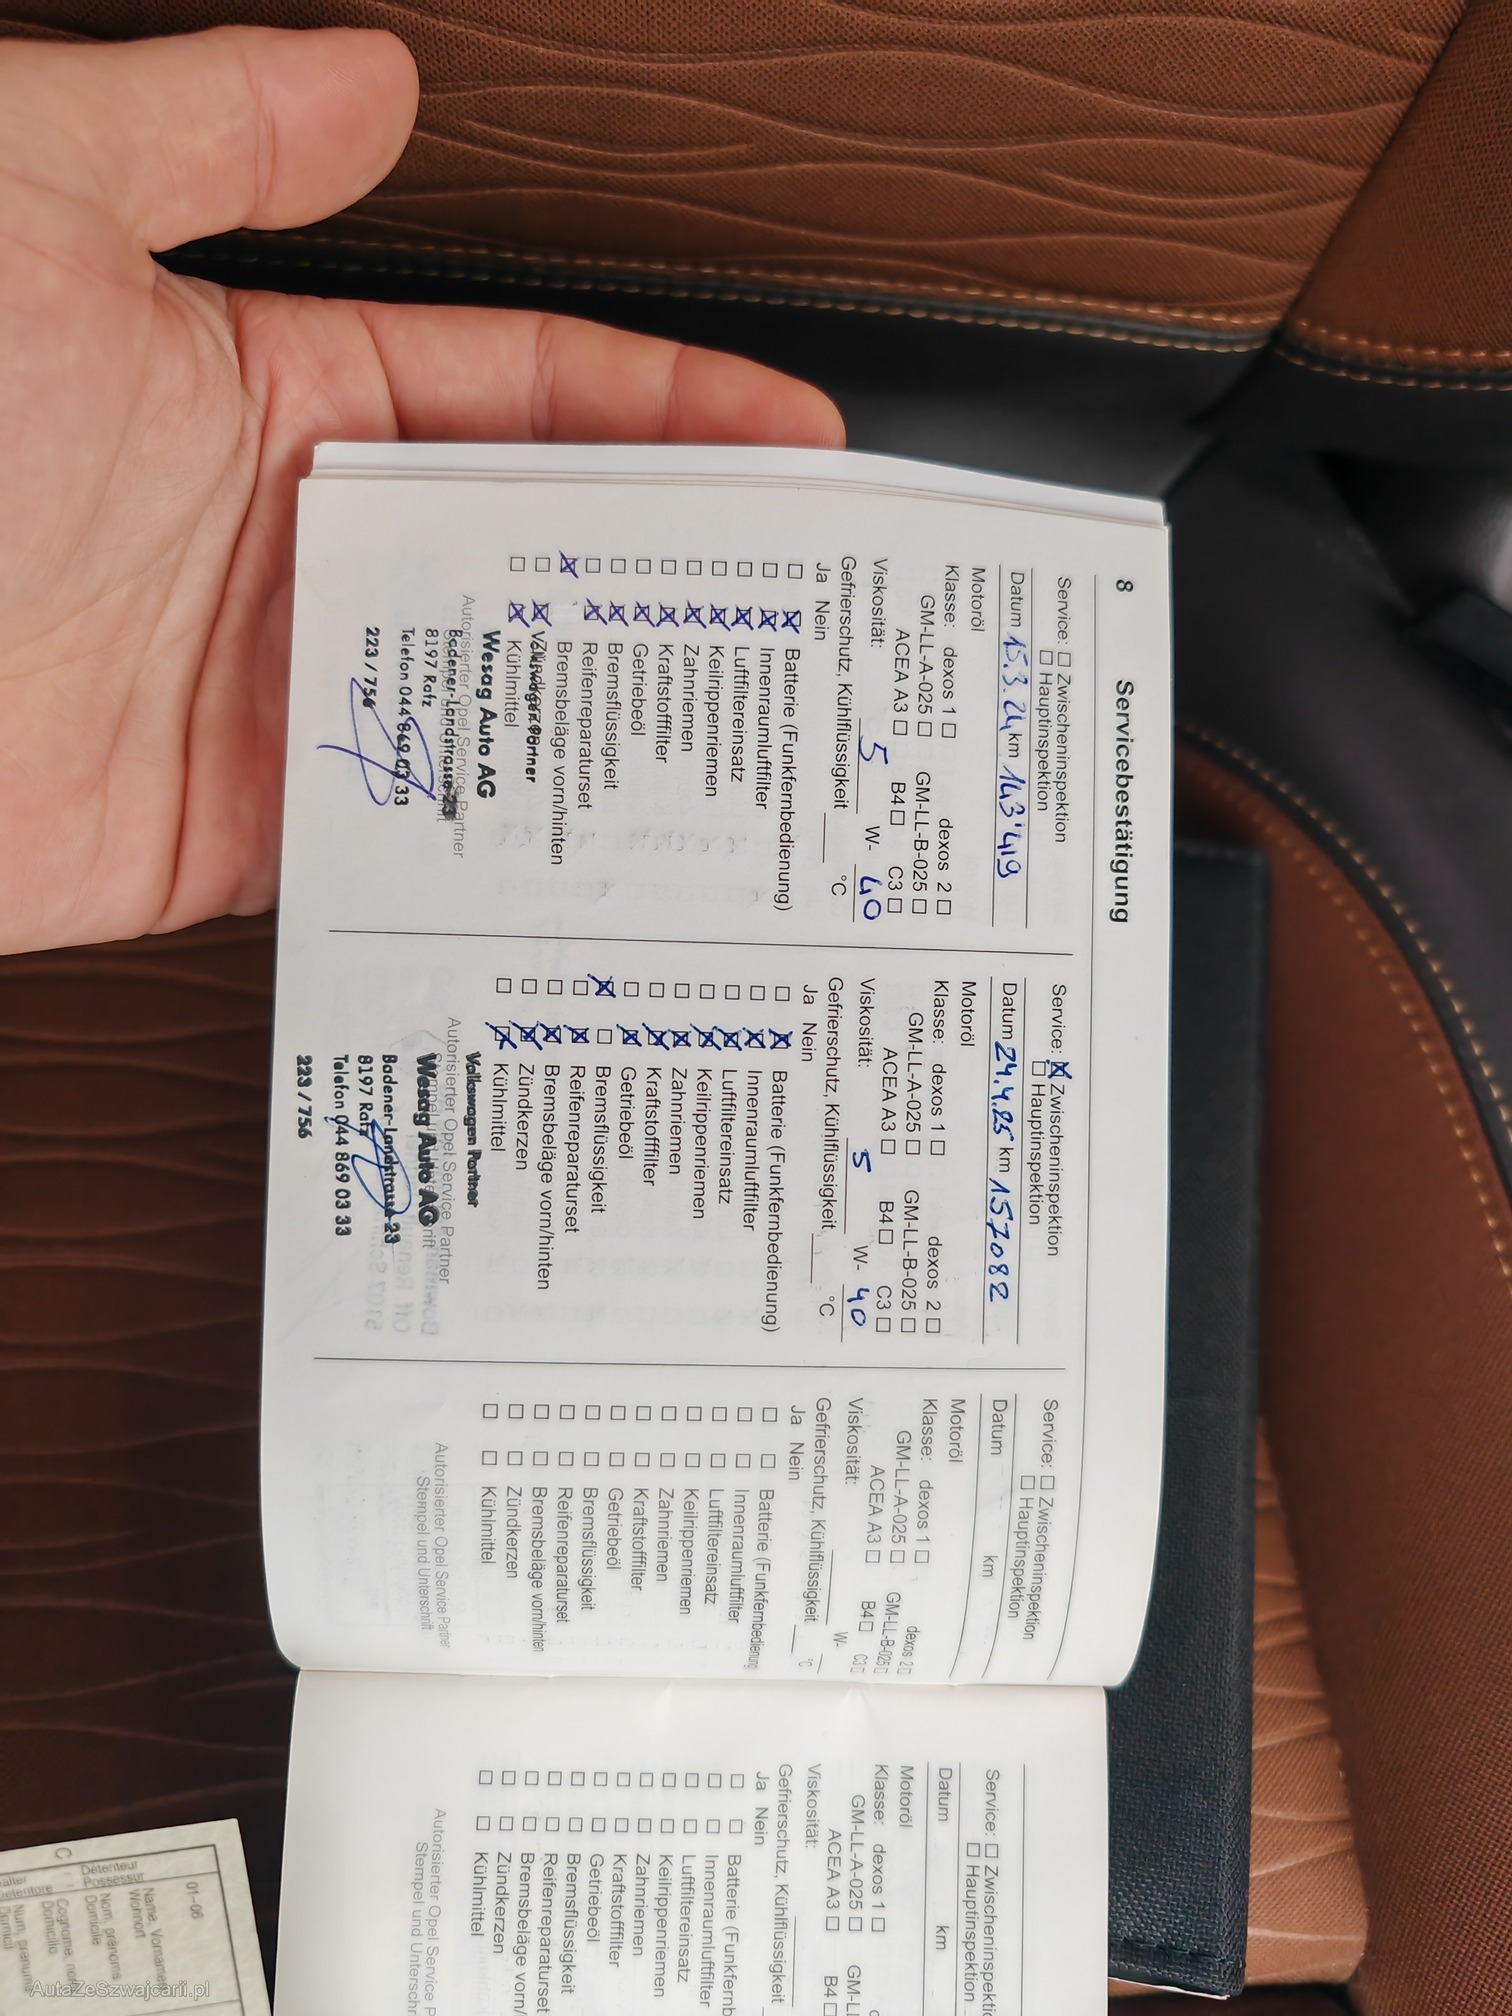 8 Servicebestätigung
Service: ☐ Zwischeninspektion
☐ Hauptinspektion
Datum 15.3.24 km 143'419
Motoröl
Klasse: dexos 1 ☐ dexos 2 ☐
GM-LL-A-025 ☐ GM-LL-B-025 ☐
ACEA A3 ☐ B4 ☐ C3 ☐
Viskosität: 5 W- 40
Gefrierschutz, Kühlflüssigkeit ____ °C
Ja Nein
☐ ☒ Batterie (Funkfernbedienung)
☐ ☒ Innenraumluftfilter
☐ ☒ Luftfiltereinsatz
☐ ☒ Keilrippenriemen
☐ ☒ Zahnriemen
☐ ☒ Kraftstofffilter
☐ ☒ Getriebeöl
☐ ☒ Bremsflüssigkeit
☐ ☒ Reifenreparaturset
☒ Bremsbeläge vorn/hinten
☐ ☒ Zündkerzen
☐ ☒ Kühlmittel
Volkswagen Partner
Wesag Auto AG
Autorisierter Opel Service Partner
Badener-Landstrasse 23
8197 Rafz
Telefon 044 869 03 33
223 / 756
Service: ☒ Zwischeninspektion
☐ Hauptinspektion
Datum 24.4.25 km 157082
Motoröl
Klasse: dexos 1 ☐ dexos 2 ☐
GM-LL-A-025 ☐ GM-LL-B-025 ☐
ACEA A3 ☐ B4 ☐ C3 ☐
Viskosität: 5 W- 40
Gefrierschutz, Kühlflüssigkeit ____ °C
Ja Nein
☐ ☒ Batterie (Funkfernbedienung)
☐ ☒ Innenraumluftfilter
☐ ☒ Luftfiltereinsatz
☐ ☒ Keilrippenriemen
☐ ☒ Zahnriemen
☐ ☒ Kraftstofffilter
☐ ☒ Getriebeöl
☒ ☐ Bremsflüssigkeit
☐ ☒ Reifenreparaturset
☐ ☒ Bremsbeläge vorn/hinten
☐ ☒ Zündkerzen
☐ ☒ Kühlmittel
Volkswagen Partner
Autorisierter Opel Service Partner
Wesag Auto AG
Badener-Landstrasse 23
8197 Rafz
Telefon 044 869 03 33
223 / 756
Service: ☐ Zwischeninspektion
☐ Hauptinspektion
Datum km
Motoröl
Klasse: dexos 1 ☐ dexos 2 ☐
GM-LL-A-025 ☐ GM-LL-B-025 ☐
ACEA A3 ☐ B4 ☐ C3 ☐
Viskosität: ____ W- __
Gefrierschutz, Kühlflüssigkeit ___ °C
Ja Nein
☐ ☐ Batterie (Funkfernbedienung
☐ ☐ Innenraumluftfilter
☐ ☐ Luftfiltereinsatz
☐ ☐ Keilrippenriemen
☐ ☐ Zahnriemen
☐ ☐ Kraftstofffilter
☐ ☐ Getriebeöl
☐ ☐ Bremsflüssigkeit
☐ ☐ Reifenreparaturset
☐ ☐ Bremsbeläge vorn/hinten
☐ ☐ Zündkerzen
☐ ☐ Kühlmittel
Autorisierter Opel Service Partner
Stempel und Unterschrift
Service: ☐ Zwischeninspekti
☐ Hauptinspektion
Datum km
Motoröl
Klasse: dexos 1 ☐
GM-LL-A-025 ☐ GM-LL
ACEA A3 ☐ B4 ☐
Viskosität:
Gefrierschutz, Kühlflüssigkeit
Ja Nein
☐ ☐ Batterie (Funkfernb
☐ ☐ Innenraumluftfilter
☐ ☐ Luftfiltereinsatz
☐ ☐ Keilrippenriemen
☐ ☐ Zahnriemen
☐ ☐ Kraftstofffilter
☐ ☐ Getriebeöl
☐ ☐ Bremsflüssigkeit
☐ ☐ Reifenreparaturset
☐ ☐ Bremsbeläge vorn/
☐ ☐ Zündkerzen
☐ ☐ Kühlmittel
Autorisierter Opel Service P
Stempel und Unterschr
01-06
C
Détenteur
Possessur
Name, Vorname
Wohnort
Nom, prénoms
Domicile
Cognome,
Domicilio
Num, prenums
Domicil
AutaZeSzwajcarii.pl